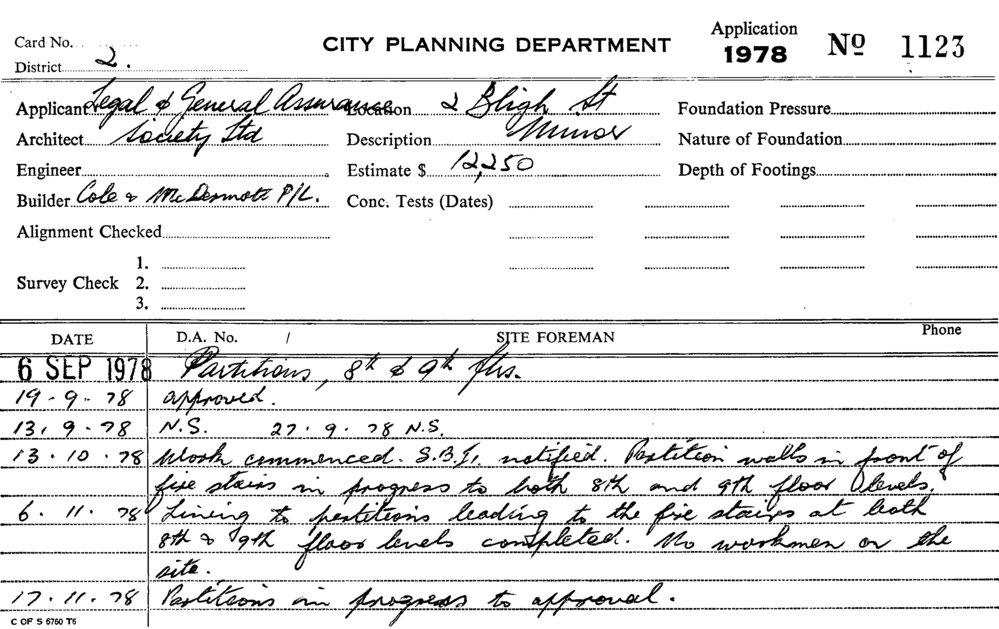 Application
Card No. CITY PLANNING DEPARTMENT 1978 Nº 1123
District 2.
Applicant Legal & General Assurance Location 2 Bligh St Foundation Pressure
Architect Society Ltd Description Minor Nature of Foundation
Engineer Estimate $ 12,250 Depth of Footings
Builder Cole & McDermott P/L. Conc. Tests (Dates)
Alignment Checked
1.
Survey Check 2.
3.
DATE D.A. No. / SITE FOREMAN Phone
6 SEP 1978 Partitions, 8th & 9th flrs.
19-9-78 approved.
13.9.78 N.S. 27.9.78 N.S.
13.10.78 Work commenced. S.B.I. notified. Partition walls in front of
fire stairs in progress to both 8th and 9th floor levels.
6.11.78 Lining to partitions leading to the fire stairs at both
8th & 9th floor levels completed. No workmen on the
site.
17.11.78 Partitions in progress to approval.
C OF S 6760 T6